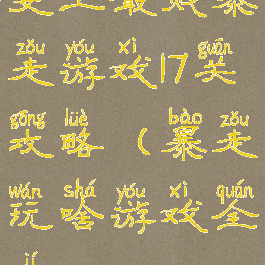 史上最贱暴
zǒu yóu xì guān
走游戏17关
gōng lüè bào zǒu
攻略（暴走
wán shá yóu xì quán
玩啥游戏全
jí